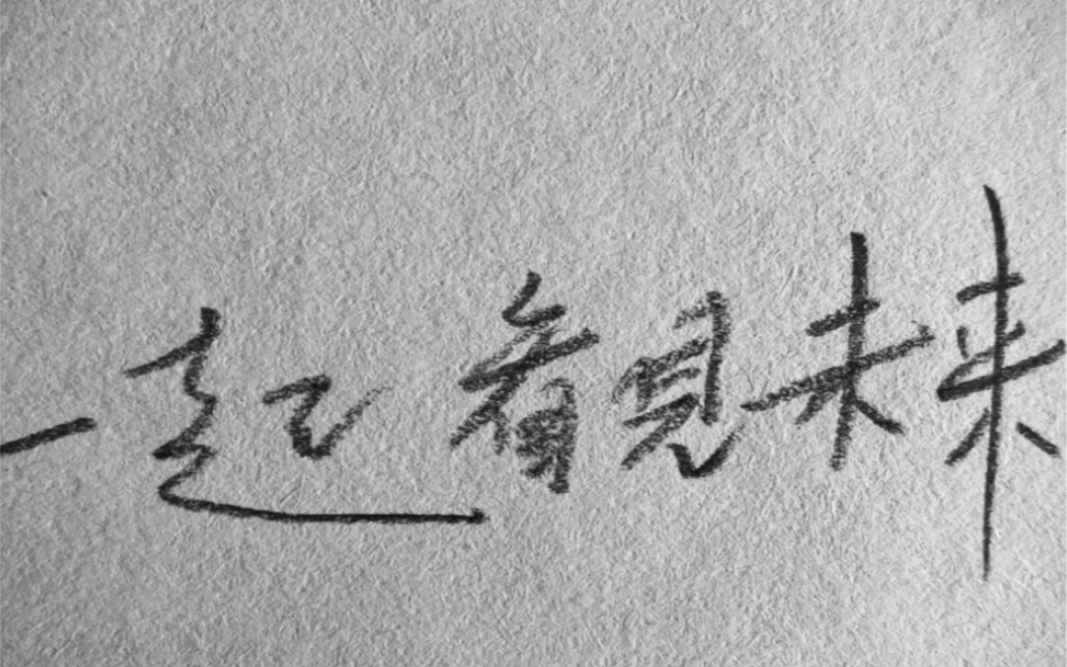 一起看見未来